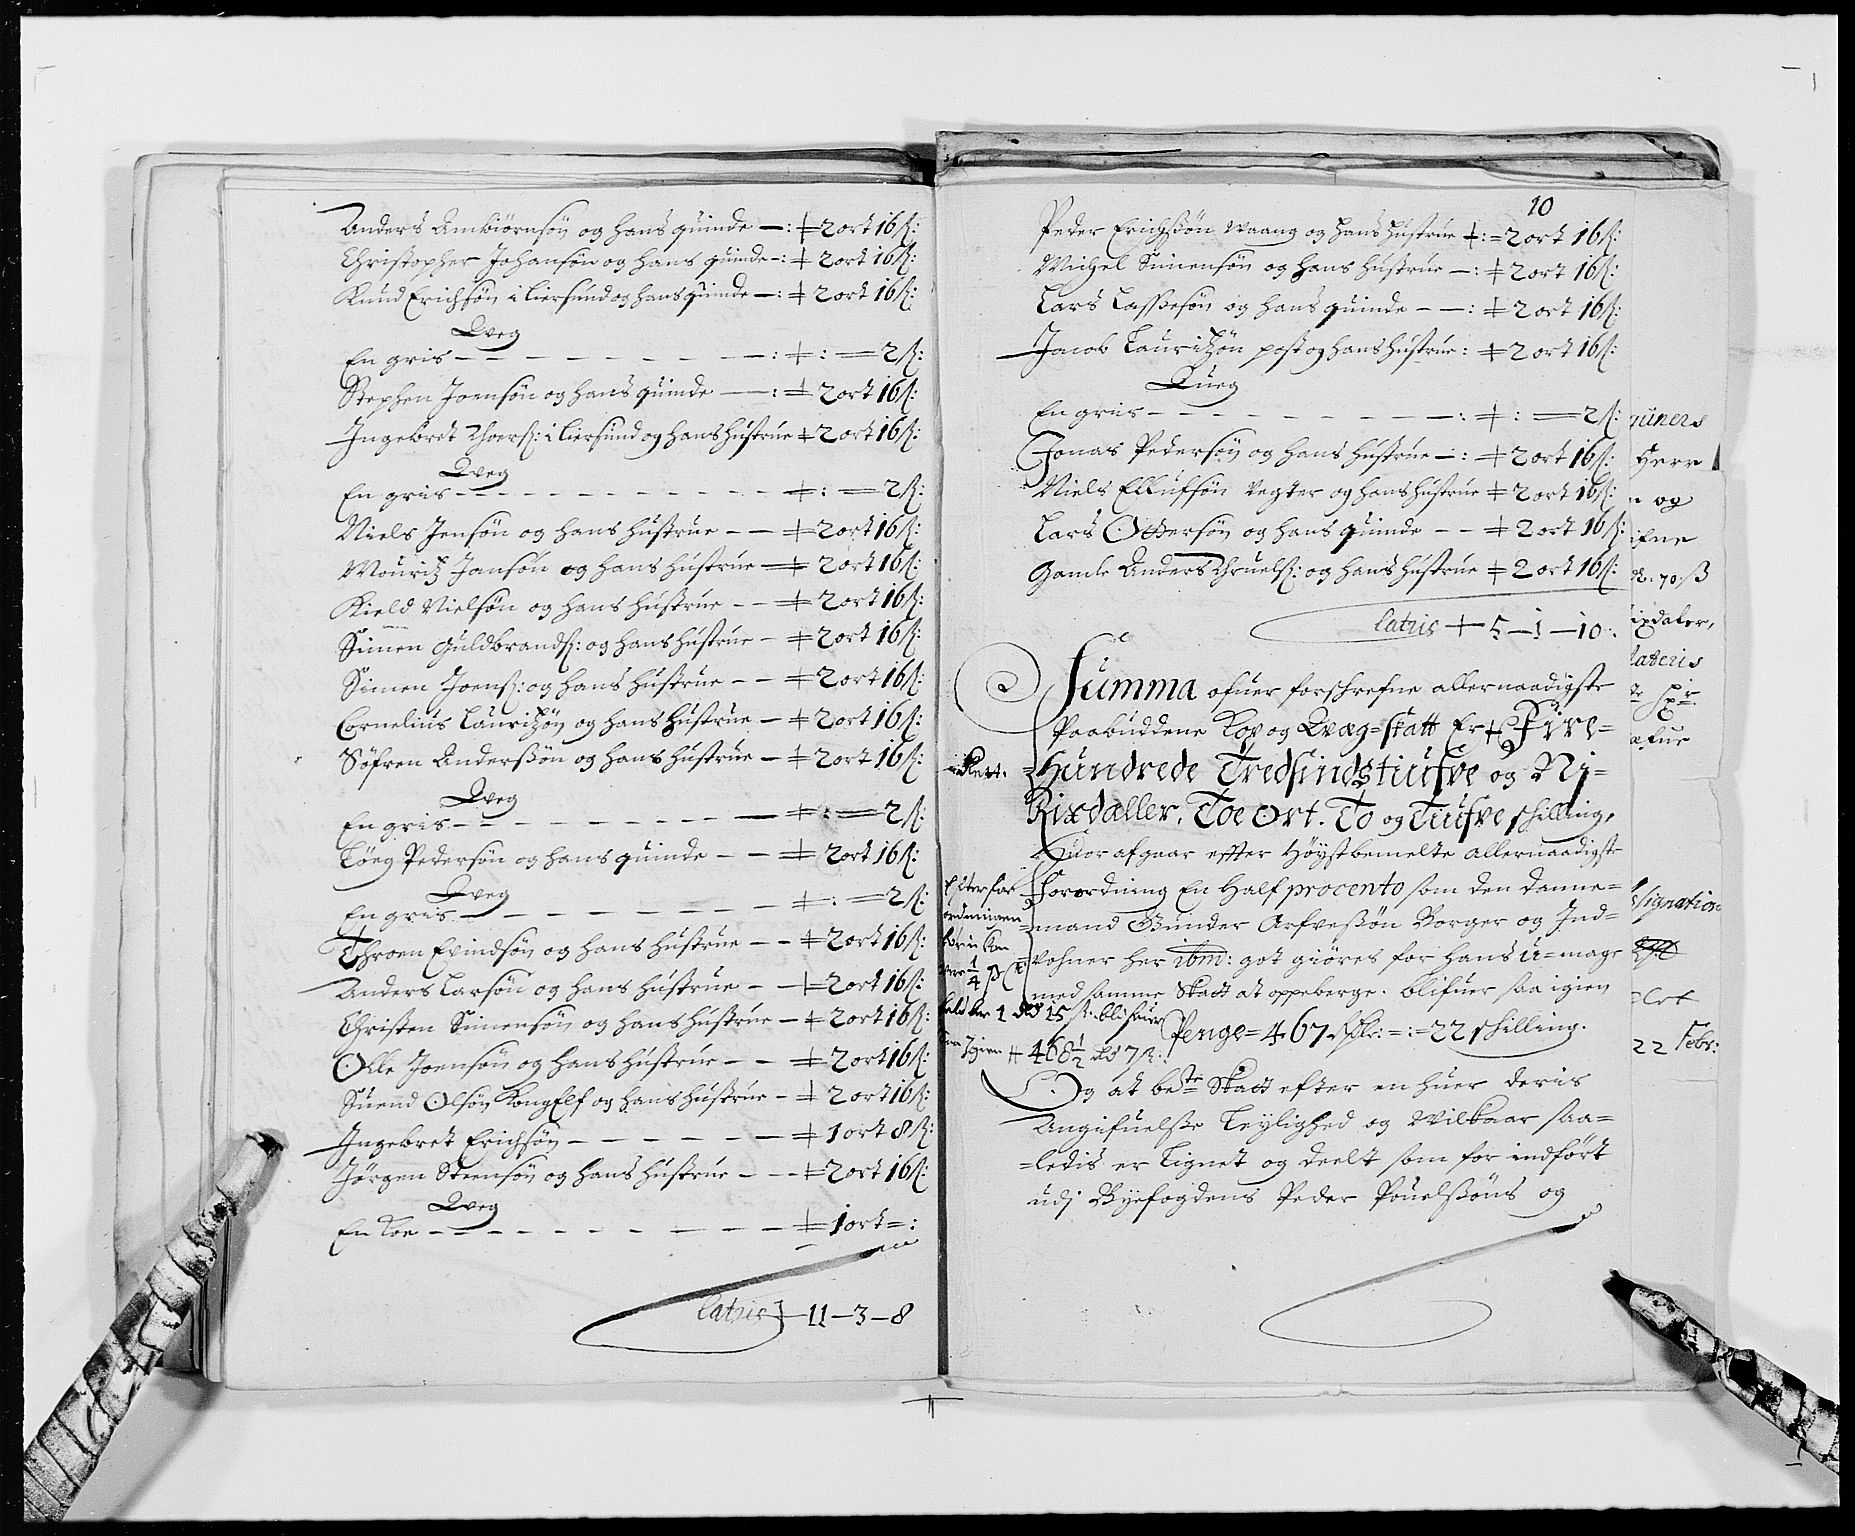 Anders Ambiörnsön og hans quinde — : ‡ 2 ort 16 ß:
Christopher Johansön og hans quinde — : ‡ 2 ort 16 ß:
Knud Erichsön i Liersund og hans quinde — : ‡ 2 ort 16 ß:
Qveg
En gris — — — : ‡ : = 2 ß:
Stephen Joensön og hans quinde — : ‡ 2 ort 16 ß:
Ingebret Thoerß: i Liersund og hans hustrue ‡ 2 ort 16 ß:
Qveg
En griis — — — ‡ : = 2 ß:
Niels Jensön og hans hustrue — — ‡ 2 ort 16 ß:
Mouritz Jansön og hans hustrue ‡ 2 ort 16 ß:
Kield Nielsön og hans hustrue — — ‡ 2 ort 16 ß:
Simen Guldbrandß: og hans hustrue — ‡ 2 ort 16 ß:
Simen Joenß: og hans hustrue — — ‡ 2 ort 16 ß:
Cornelius Lauritzön og hans hustrue — ‡ 2 ort 16 ß:
Söfren Anderssön og hans hustrue — ‡ 2 ort 16 ß:
Qveg
En gris — — — ‡ : = 2 ß:
Töeg Pedersön og hans quinde — — ‡ 2 ort 16 ß:
Qveg
En gris — — — ‡ : = 2 ß:
Throen Evindsön og hans hustrue — — ‡ 2 ort 16 ß:
Anders Larsön og hans hustrue — — ‡ 2 ort 16 ß:
Christen Simensön og hans hustrue — ‡ 2 ort 16 ß:
Olle Joensön og hans hustrue — — ‡ 2 ort 16 ß:
Suend Olsön KongElf og hans hustrue — ‡ 2 ort 16 ß:
Ingebret Erichsön — — — ‡ 1 ort 8 ß:
Jörgen Steensön og hans hustrue — — ‡ 2 ort 16 ß:
Qveg
En Koe — — — ‡ 1 ort = :
Latris ‡ 11 — 3 — 8
10
Peder Erichssön Waang og hans hustrue ‡ : = 2 ort 16 ß:
Michel Simensön og hans hustrue — : ‡ 2 ort 16 ß:
Lars Lassesön og hans quinde — — : ‡ 2 ort 16 ß:
Jacob Lauritzön post og hans hustrue : ‡ 2 ort 16 ß:
Queg
En griis — — — : ‡ : = 2 ß:
Jonas Pedersön og hans hustrue — : ‡ 2 ort 16 ß:
Niels Ellufsön Vegter og hans hustrue ‡ 2 ort 16 ß:
Lars Ottersön og hans quinde — — ‡ 2 ort 16 ß:
Gamle Anders Thruelß: og hans hustrue ‡ 2 ort 16 ß:
Latris ‡ 5 — 1 — 10 :
Summa ofuer forschrefne allernaadigste
Paabuddene Kop og Qvæg=skatt Er ‡ Fire=
Hundrede Tredsindstiufve og Ni=
Rixdaller, Toe Ort. To og Tiufve schilling,
Huor afgaar effter Höystbemelte allernaadigste
Forordning En Half procento som den Danne=
mand Gunder Arfvessön Borger og Ind=
vohner her ibm: got giöres for hans U=mage
med samme Skatt at oppeberge. blifuer saa igien
Penge = 467 Rdlr: = : = 22 schilling.
Og at bete Skatt efter en huer deris
Angifuelse Leylighed og Vilkaar saa=
=ledis er Lignet og deelt som for indfört
udj Byefogdens Peder Pouelssöns og
Rett.
Efter for
ordningen
1/4
blifuer
saa Igien ‡ 468 1/2
guners
Herr
og
Rixdaler,
Lateris
signation
22 Febr: